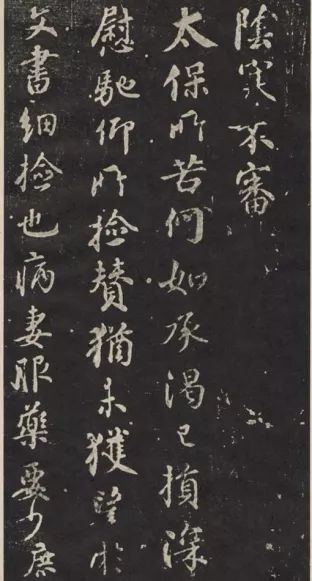 陰寒不審
太保所苦何如承渴已損深
慰馳仰所撿贊猶未獲望於
文書細撿也病妻服藥要少鹿